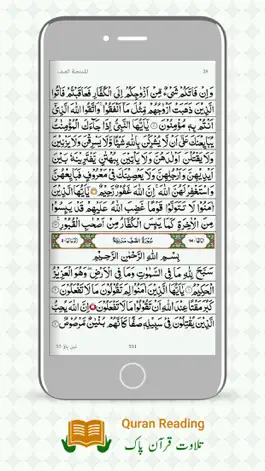 الممتحنة الصف
وَاِنْ فَاتَكُمْ شَيْءٌ مِّنْ اَزْوَاجِكُمْ اِلَى الْكُفَّارِ فَعَاقَبْتُمْ فَاٰتُوا
الَّذِيْنَ ذَهَبَتْ اَزْوَاجُهُمْ مِّثْلَ مَاۤ اَنْفَقُوْا وَاتَّقُوا اللّٰهَ الَّذِيْۤ
اَنْتُمْ بِهٖ مُؤْمِنُوْنَ يٰۤاَيُّهَا النَّبِيُّ اِذَا جَآءَكَ الْمُؤْمِنٰتُ
يُبَايِعْنَكَ عَلٰۤى اَنْ لَّا يُشْرِكْنَ بِاللّٰهِ شَيْـًٔا وَّلَا يَسْرِقْنَ وَلَا يَزْنِيْنَ
وَلَا يَقْتُلْنَ اَوْلَادَهُنَّ وَلَا يَاْتِيْنَ بِبُهْتَانٍ يَّفْتَرِيْنَهٗ بَيْنَ
اَيْدِيْهِنَّ وَاَرْجُلِهِنَّ وَلَا يَعْصِيْنَكَ فِيْ مَعْرُوْفٍ فَبَايِعْهُنَّ
وَاسْتَغْفِرْ لَهُنَّ اللّٰهَ اِنَّ اللّٰهَ غَفُوْرٌ رَّحِيْمٌ يٰۤاَيُّهَا الَّذِيْنَ
اٰمَنُوْا لَا تَتَوَلَّوْا قَوْمًا غَضِبَ اللّٰهُ عَلَيْهِمْ قَدْ يَئِسُوْا
مِنَ الْاٰخِرَةِ كَمَا يَئِسَ الْكُفَّارُ مِنْ اَصْحٰبِ الْقُبُوْرِ
سُوْرَةُ الصَّفِّ مَدَنِيَّةٌ
بِسْمِ اللّٰهِ الرَّحْمٰنِ الرَّحِيْمِ
سَبَّحَ لِلّٰهِ مَا فِي السَّمٰوٰتِ وَمَا فِي الْاَرْضِ وَهُوَ الْعَزِيْزُ
الْحَكِيْمُ يٰۤاَيُّهَا الَّذِيْنَ اٰمَنُوْا لِمَ تَقُوْلُوْنَ مَا لَا تَفْعَلُوْنَ
كَبُرَ مَقْتًا عِنْدَ اللّٰهِ اَنْ تَقُوْلُوْا مَا لَا تَفْعَلُوْنَ اِنَّ اللّٰهَ يُحِبُّ
الَّذِيْنَ يُقَاتِلُوْنَ فِيْ سَبِيْلِهٖ صَفًّا كَاَنَّهُمْ بُنْيَانٌ مَّرْصُوْصٌ
551
Quran Reading
تلاوت قرآن پاک